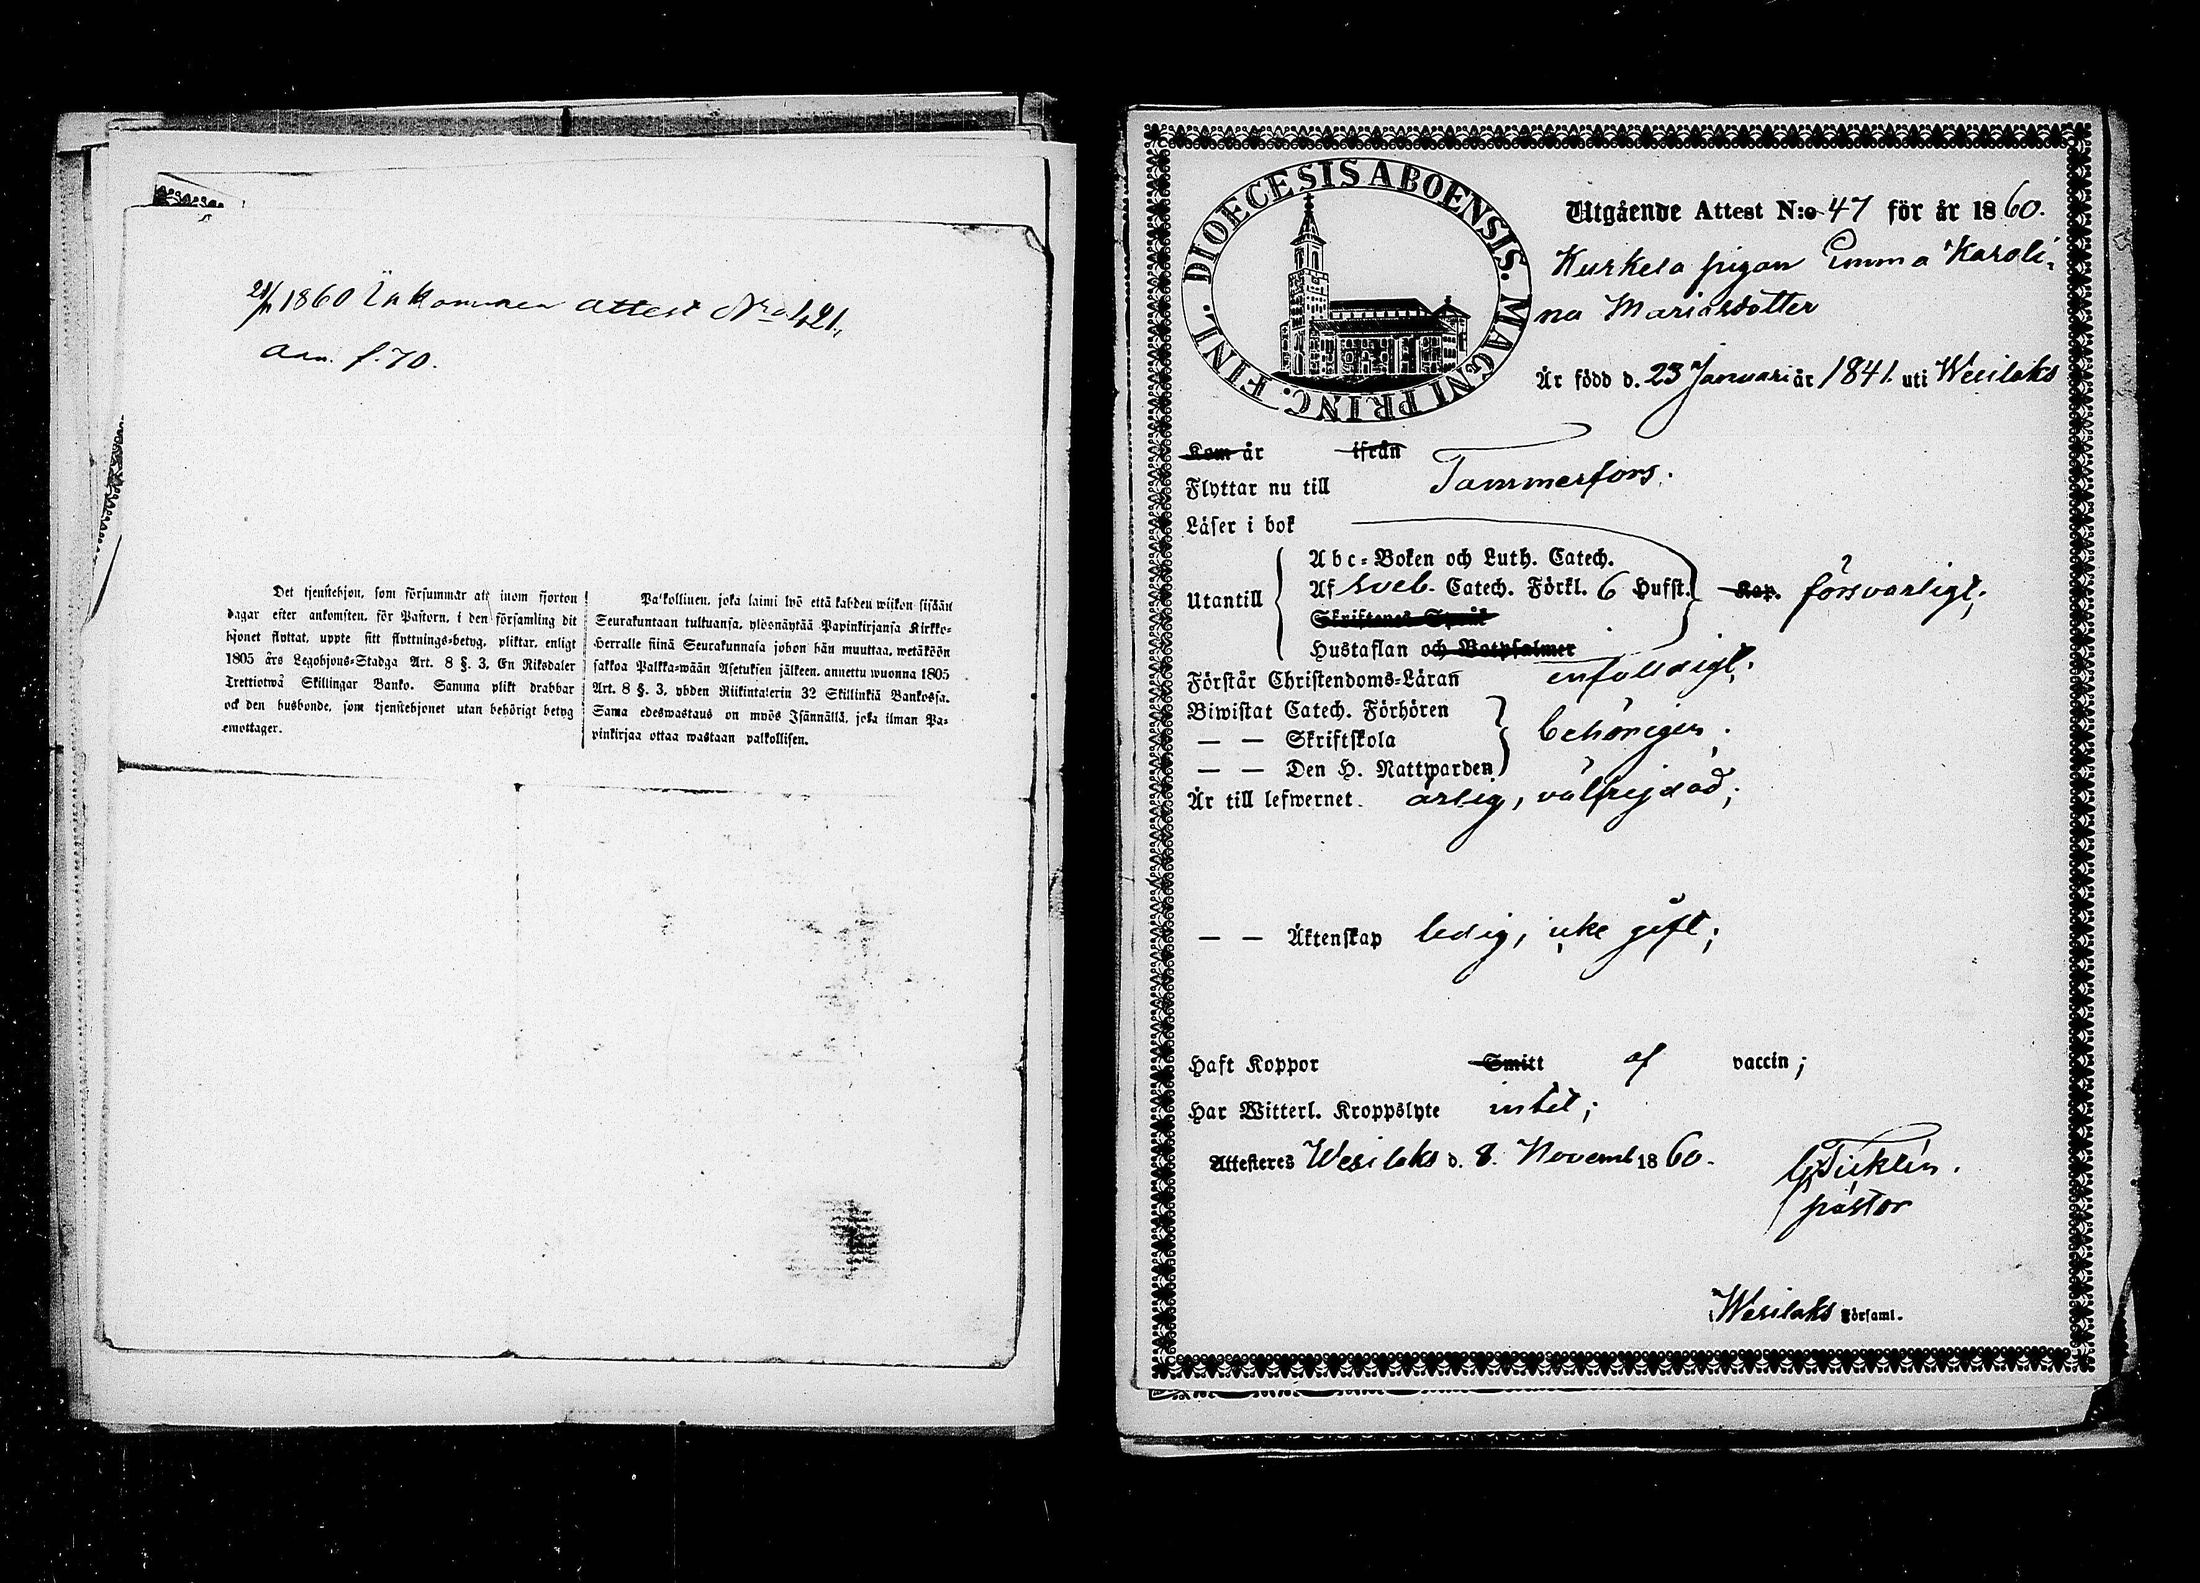 21/11 1860 Inkommen attest No 421,
ann. f. 70.
Det tjenstehjon, som försummar att inom fjorton
dagar efter ankomsten, för Pastorn, i den församling dit
hjonet flyttat, uppte sitt flyttnings-betyg, pliktar, enligt
1805 års Legohjons-Stadga Art. 8 §. 3, En Riksdaler
Trettiotwå Skillingar Banko. Samma plikt drabbar
ock den husbonde, som tjenstehjonet utan behörigt betyg
emottager.
Palkollinen, joka laimi lyö että kahden wiikon sisään
Seurakuntaan tultuansa, ylösnäytää Papinkirjansa Kirkko-
Herralle siinä Seurakunnasa johon hän muuttaa, wetäköön
sakkoa Palkka-wään Asetuksen jälkeen, annettu wuonna 1805
Art. 8 §. 3, yhden Riikintalerin 32 Skillinkiä Bankossa.
Sama edeswastaus on myös Isännällä, joka ilman Pa-
pinkirjaa ottaa wastaan palkollisen.
DIOECESIS ABOENSIS. MAGNI PRINC. FINL.
Utgående Attest N:o 47 för år 1860.
Kurkela pigan Emma Karoli-
na Mariasdotter
Är född d. 23 Januari år 1841. uti Wesilaks
Kom år ifrån
Flyttar nu till Tammerfors.
Läser i bok
Abc-Boken och Luth. Catech.
Utantill Af Sveb. Catech. Förkl. 6 Hufst. Kap. försvarligt;
Skriftenes Språk
Hustaflan och Botpsalmer
Förstår Christendoms-Läran enfaldigt;
Biwistat Catech. Förhören
— — Skriftskola behörigen;
— — Den H. Nattwarden
Är till lefwernet ärlig, välfrejdad;
— — Äktenskap ledig, icke gift;
Haft Koppor Smitt af vaccin;
Har Witterl. Kroppslyte intet;
Attesteres Wesilaks d. 8. Novemb 1860.
pastor
i Wesilaks Församl.